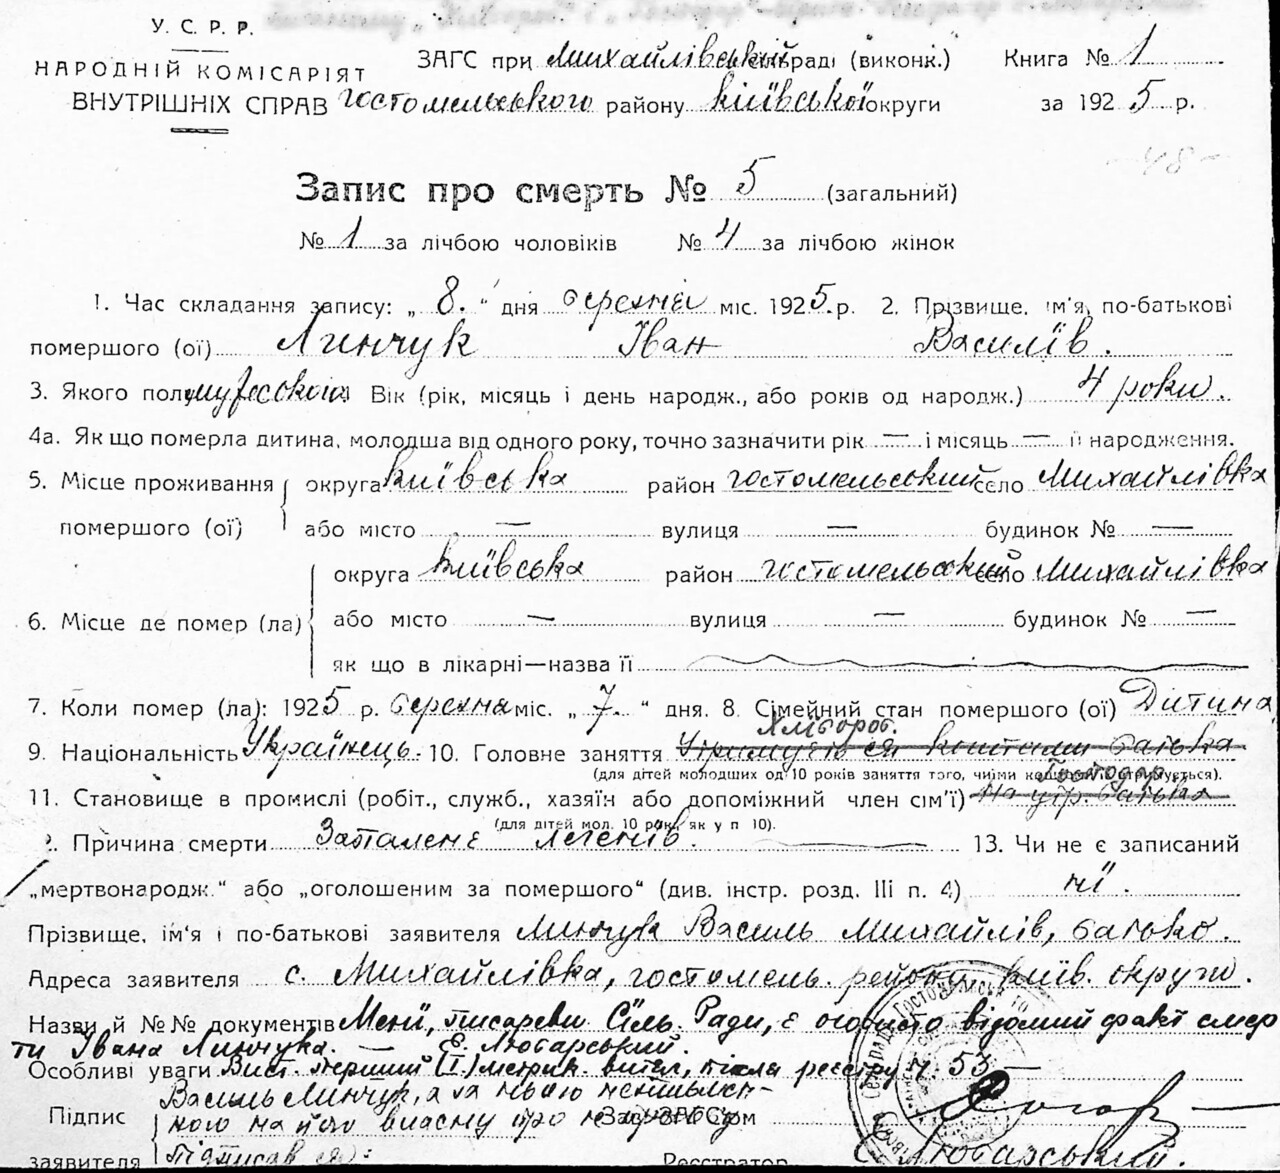 У. С. Р. Р.
НАРОДНІЙ КОМІСАРІЯТ
ВНУТРІШНІХ СПРАВ
ЗАГС при Михайлівській сільраді (виконк.)
Гостомельського району Київської округи
Книга № 1
за 1925 р.
48
Запис про смерть № 5 (загальний)
№ 1 за лічбою чоловіків № 4 за лічбою жінок
1. Час складання запису: „ 8. “ дня березня міс. 1925. р. 2. Прізвище, ім'я, по-батькові
помершого (ої) Линчук Іван Василів.
3. Якого полу мужеського Вік (рік, місяць і день народж., або років од народж.) 4 роки.
4а. Як що померла дитина, молодша від одного року, точно зазначити рік — і місяць — її народження.
5. Місце проживання помершого (ої) округа Київська район Гостомельський село Михайлівка
або місто — вулиця — будинок № —
6. Місце де помер (ла) округа Київська район Гостомельський село Михайлівка
або місто — вулиця — будинок № —
як що в лікарні—назва її
7. Коли помер (ла): 1925 р. березня міс. „ 7. “ дня. 8. Сімейний стан помершого (ої) Дитина
Хлібороб.
9. Національність Українець. 10. Головне заняття Утримується коштами батька
(для дітей молодших од 10 років заняття того, чиїми коштами утримується).
Господар
11. Становище в промислі (робіт., служб., хазяїн або допоміжний член сім'ї) на утр. батька
(для дітей мол. 10 рок. як у п 10).
2. Причина смерти Запаленє легенів. 13. Чи не є записаний
„мертвонародж.“ або „оголошеним за помершого“ (див. інстр. розд. III п. 4) ні.
Прізвище, ім'я і по-батькові заявителя Линчук Василь Михайлів, батько.
Адреса заявителя с. Михайлівка, Гостомель. району, Київ. округи.
Назви й №№ документів Мені, писареви Сіль. Ради, є особисто відомий факт смер
ти Івана Линчука. — Є. Любарський.
Особливі уваги Вист. перший (I) метрик. витяг, після реєстру ч. 53
Підпис заявителя Василь Линчук, а за його неписьмен-
ного на його власну про
підписав ся: Зав. ЗАГСом
Реєстратор Є Любарський.